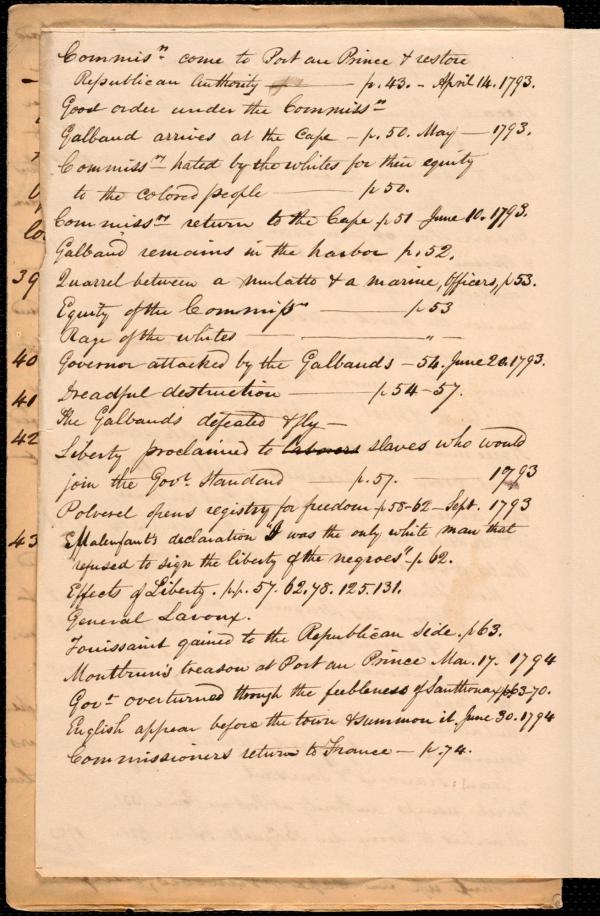 Commiss.rs come to Port au Prince & restore
Republican Authority — p. 43. - April 14. 1793.
Good order under the Commiss.rs
Galbaud arrives at the Cape — p. 50. May — 1793.
Commiss.rs hated by the whites for their equity
to the colored people — p 50.
Commiss.rs return to the Cape p 51 June 10. 1793.
Galbaud remains in the harbor p. 52.
39 Quarrel between a mulatto & a marine, Officers, p 53.
Equity of the Commiss.rs — p 53
Rage of the whites — — " —
40 Governor attacked by the Galbauds — 54. June 20. 1793.
41 Dreadful destruction — p. 54-57.
The Galbauds defeated & fly —
42 Liberty proclaimed to laborers slaves who would
join the Gov.t Standard — p. 57. — 1793
Polverel opens registry for freedom p 58-62 — Sept. 1793
43 Malenfant's declaration "I was the only white man that
refused to sign the liberty of the negroes" p 62.
Effects of Liberty. p.p. 57. 62. 78. 125. 131.
General Lavoux.
Touissaint gained to the Republican side. p 63.
Montbrun's treason at Port au Prince Mar. 17. 1794
Gov.t overturned through the feebleness of Santhonax p 63-70.
English appear before the town & summon it. June 30. 1794
Commissioners return to France — p. 74.